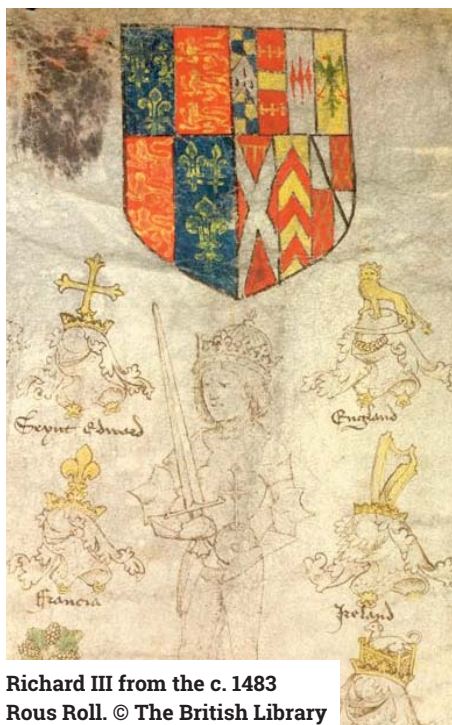 Seynt Edward
England
Francia
Ireland
Richard III from the c. 1483
Rous Roll. © The British Library